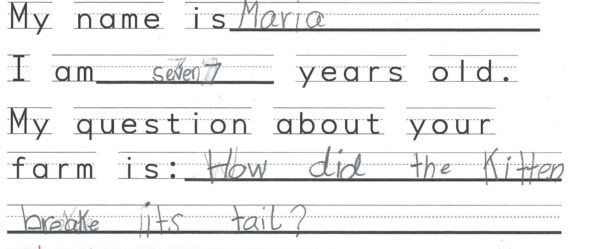 My name is Maria
I am seven 7 years old.
My question about your
farm is: How did the Kitten
breake its tail?